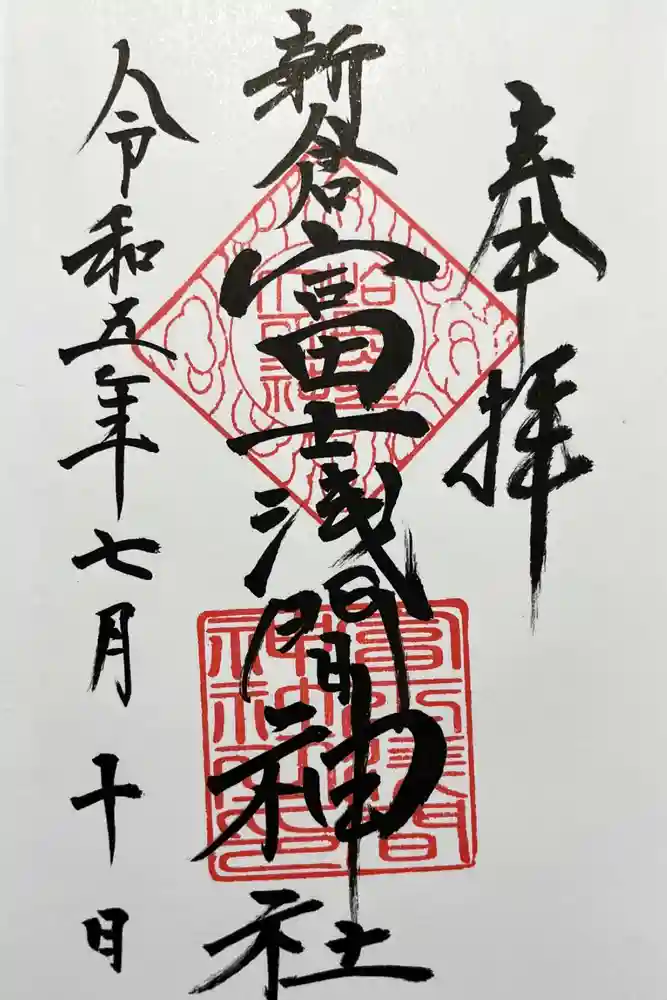 奉拝
新倉富士浅間神社
令和五年七月十日